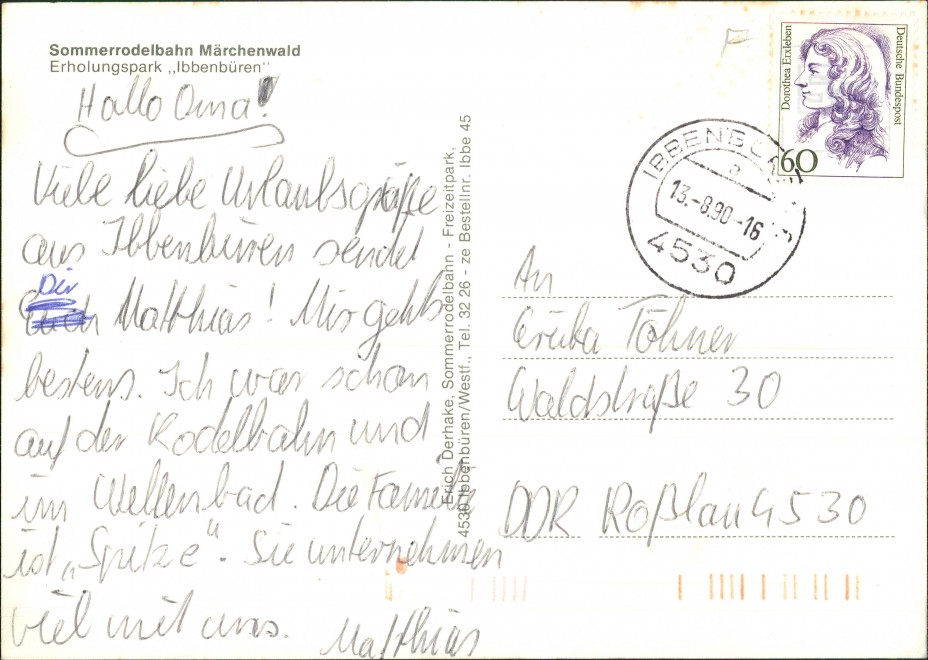 Sommerrodelbahn Märchenwald
Erholungspark „Ibbenbüren"
Hallo Oma!
Viele liebe Urlaubsgrüße
aus Ibbenbüren sendet
Dir
Matthias! Mir gehts
bestens. Ich war schon
auf der Rodelbahn und
im Wellenbad. Die Familie
ist „Spitze". Sie unternehmen
viel mit uns. Matthias
Erich Derhake, Sommerrodelbahn - Freizeitpark,
4530 Ibbenbüren/Westf., Tel. 32 26 - ze Bestellnr. Ibbe 45
F
Dorothea Erxleben
Deutsche Bundespost
60
13.-8.90-16
4530
An
Töhner
Waldstraße 30
DDR Roßlau 4530